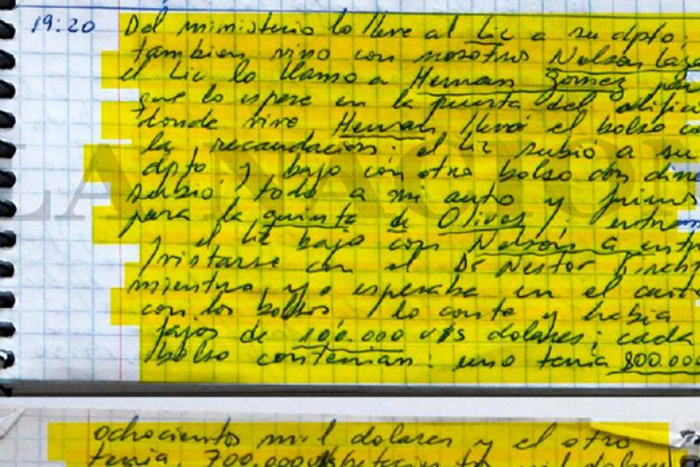 19:20 Del ministerio lo lleve al Lic a su dpto,
tambien vino con nosotros Nelson Laza
el Lic lo llamo a Hernan Gomez para
que lo espere en la puerta del edific
donde vive Hernan llevó el bolso c
la recaudación; el Lic subió a su
dpto y bajo con otro bolso con dine
subió todo a mi auto y fuimos
para la quinta de Olivos; entra
y el Lic bajo con Nelson a
con el Dr Nestor Kirch
mientra, yo esperaba en el auto
con los bolsos, lo conte y habia
fajos de 100.000 U$S dolares; cada
bolso contenian: uno tenia 800.00
ochocientos mil dolares y el otro
tenia, 700.000
LA NACION